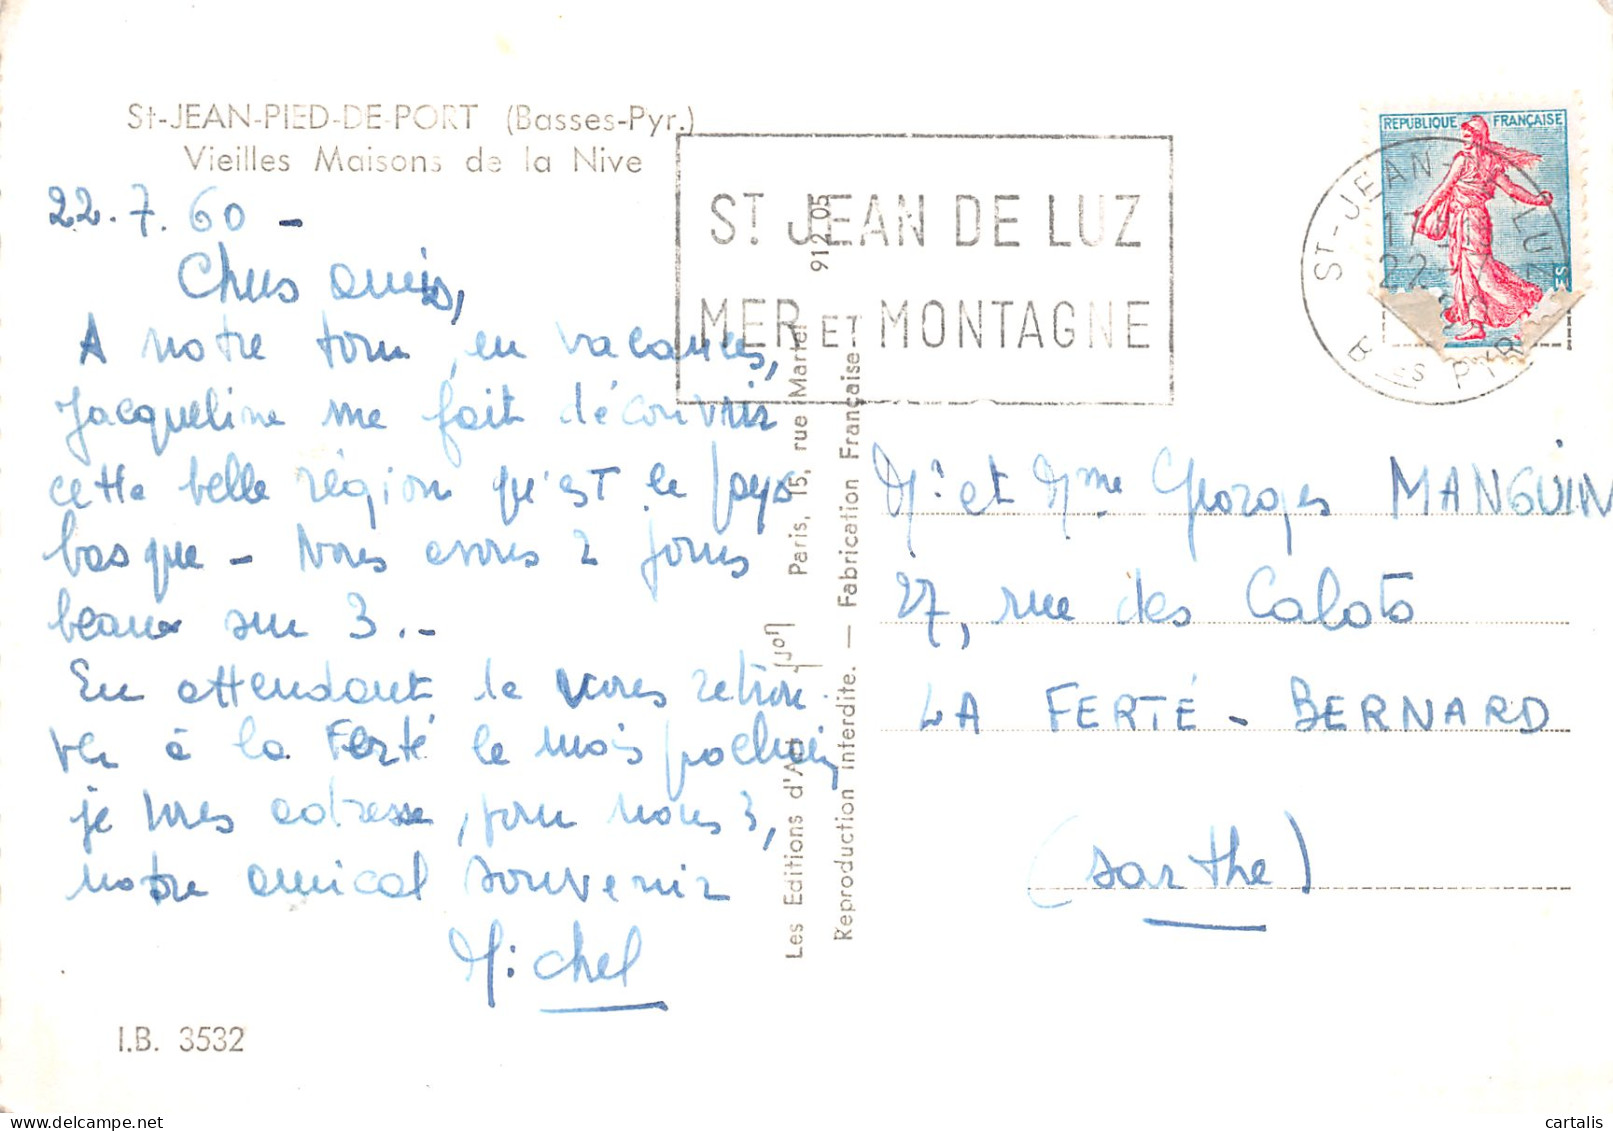 St-JEAN-PIED-DE-PORT (Basses-Pyr.)
Vieilles Maisons de la Nive
22.7.60 -
Chers amis,
A notre tour, en vacances,
Jacqueline me fait découvrir
cette belle région qu'est le pays
basque - Nous avons 2 jours
beaux sur 3.-
En attendant de vous retrou-
ver à la Ferté le mois prochain
je vous adresse, pour nous 3,
notre amical souvenir
Michel
I.B. 3532
ST JEAN DE LUZ
MER ET MONTAGNE
912.05
Les Editions d'Art Yvon Paris, 15, rue Martel
Reproduction interdite. — Fabrication Française
REPUBLIQUE FRANÇAISE
ST-JEAN- LUZ
17
22-
Bses PYR
Mr et Mme Georges MANGUIN
27, rue des Calots
LA FERTÉ - BERNARD
(Sarthe)
cartalis | delcampe.net